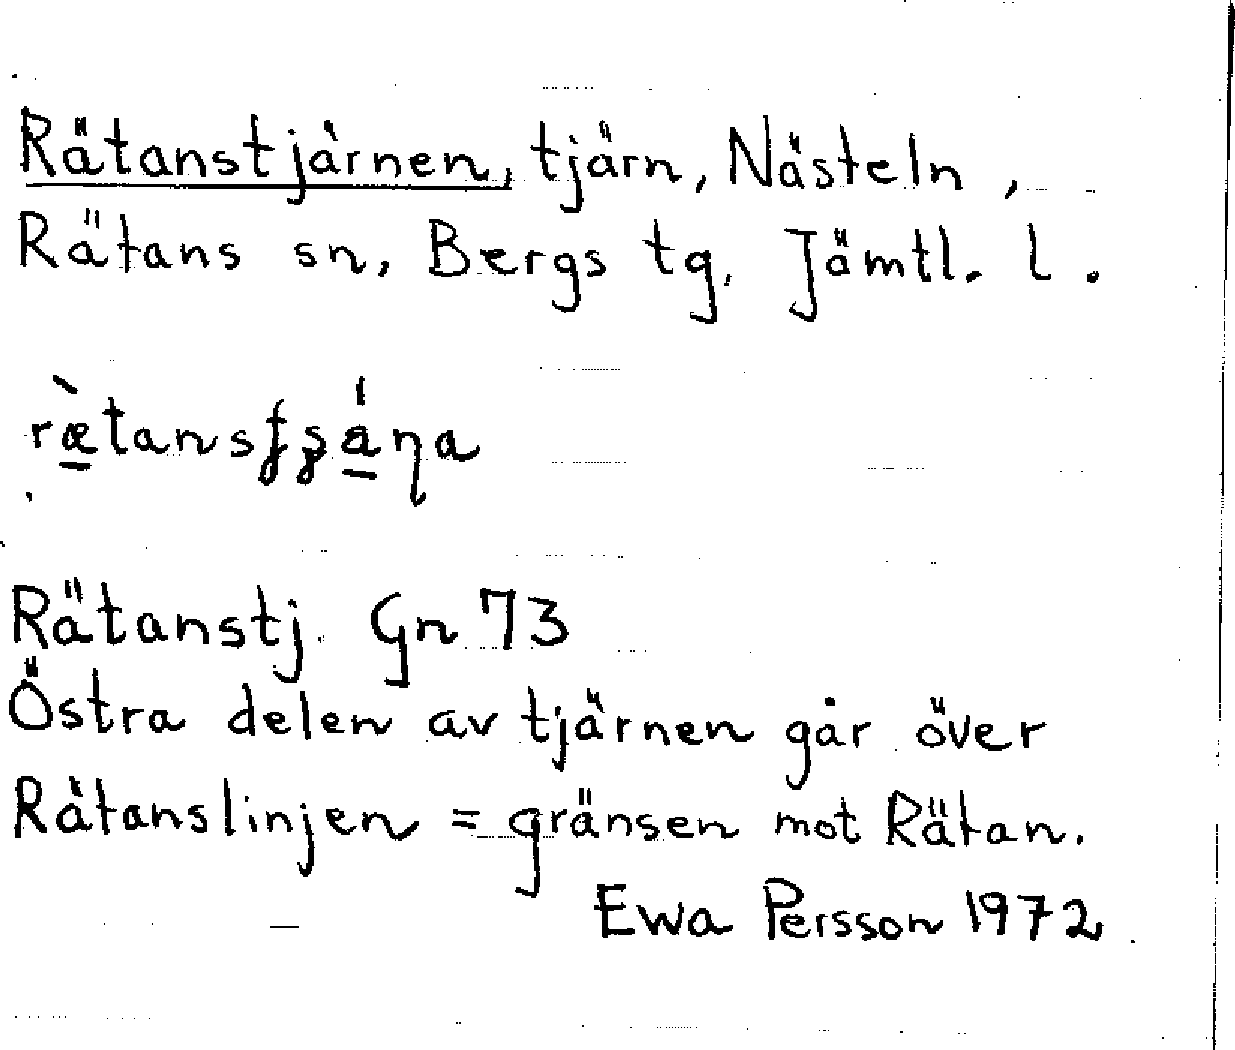 Rätanstjärnen, tjärn, Nästeln,
Rätans sn, Bergs tg. Jämtl. l.
Rätanstj. Gn 73
Östra delen av tjärnen går över
Rätanslinjen = gränsen mot Rätan.
Ewa Persson 1972